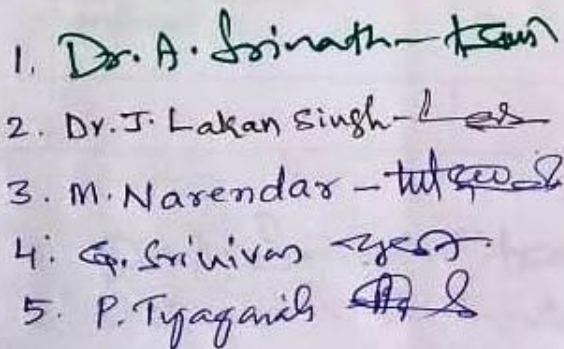 1. Dr. A. Srinath -
2. Dr. J. Lakan Singh -
3. M. Narendar -
4. G. Srinivas
5. P.